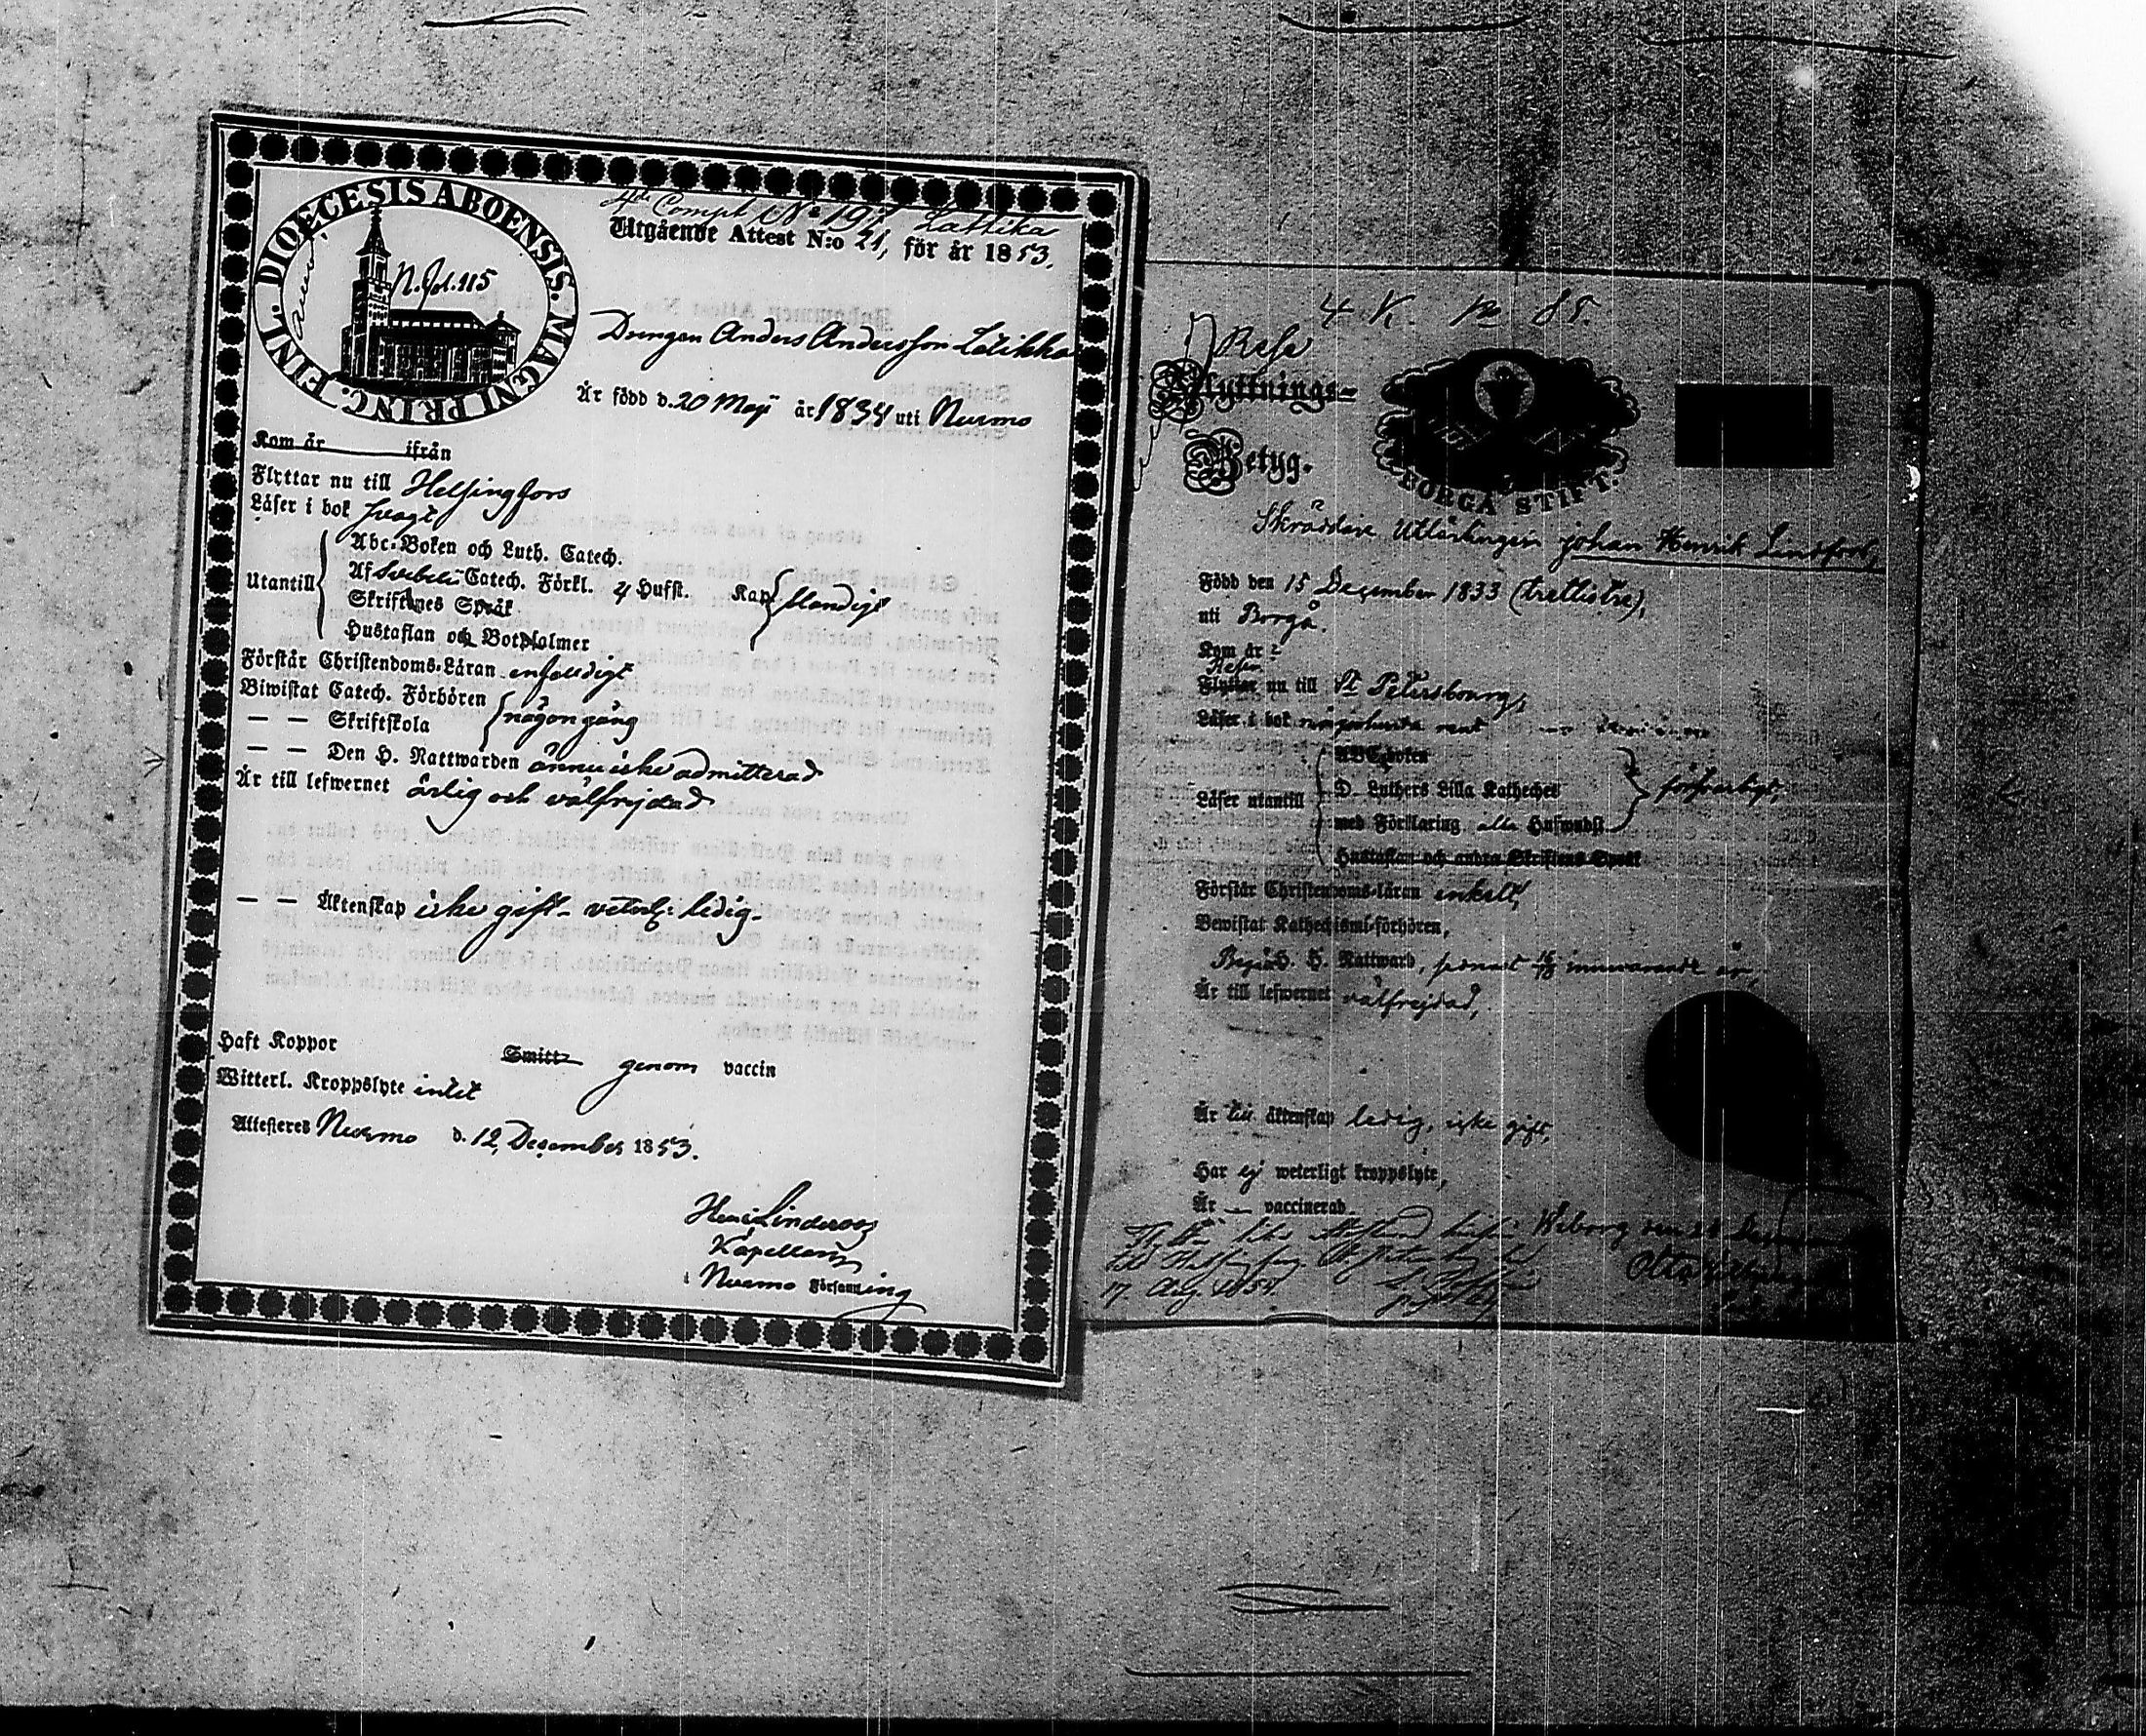 DIOECESIS ABOENSIS. MAGNI PRINC. FINL.
N. fol. 115
4de Comp. No 197 Lattika
Utgående Attest N:o 21, för år 1853.
Drengen Anders Andersson Latikka
Är född d. 20 Maji år 1834 uti Nurmo
Kom år ifrån
Flyttar nu till Helsingfors
Läser i bok svagt
Utantill
Abc-Boken och Luth. Catech.
Af Svebelii Catech. Förkl. 4 Hufst. Kap blandigt
Skriftenes Språk
Hustaflan och Botpsalmer
Förstår Christendoms-Läran enfaldigt
Biwistat Catech. Förhören
— — Skriftskola någon gång
— — Den H. Nattwarden ännu icke admitterad
Är till lefwernet ärlig och välfrejdad
— — Äktenskap icke gift - veterl: ledig.
Haft Koppor Smitt genom vaccin
Witterl. Kroppslyte intet
Attesteres Nurmo d. 12 December 1853.
Henr Linderoos
Kapellan
i Nurmo Församling
4 K. no 85.
Rese
Flyttnings-
Betyg.
BORGÅ STIFT.
Skräddare Utlärlingen Johan Henrik Lindfors,
Född den 15 December 1833 (trettiotre),
uti Borgå.
Kom år
Reser
Flyttar nu till St Petersbourg,
Läser i bok någorlunda rent
ABC-boken
Läser utantill D. Luthers Lilla Katheches försvarligt,
med Förklaring alla Hufwudst.
Hustaflan och andra Skriftens Språk
Förstår Christendoms-läran enkelt,
Bewistat Kathechismi-förhören,
Begått H. H. Nattward, sednast innevarande år,
Är till lefwernet välfrejdad,
Är till äktenskap ledig, icke gift,
Har ej weterligt kroppslyte,
Är — vaccinerad
Wiborg den
17 Aug. 1854.